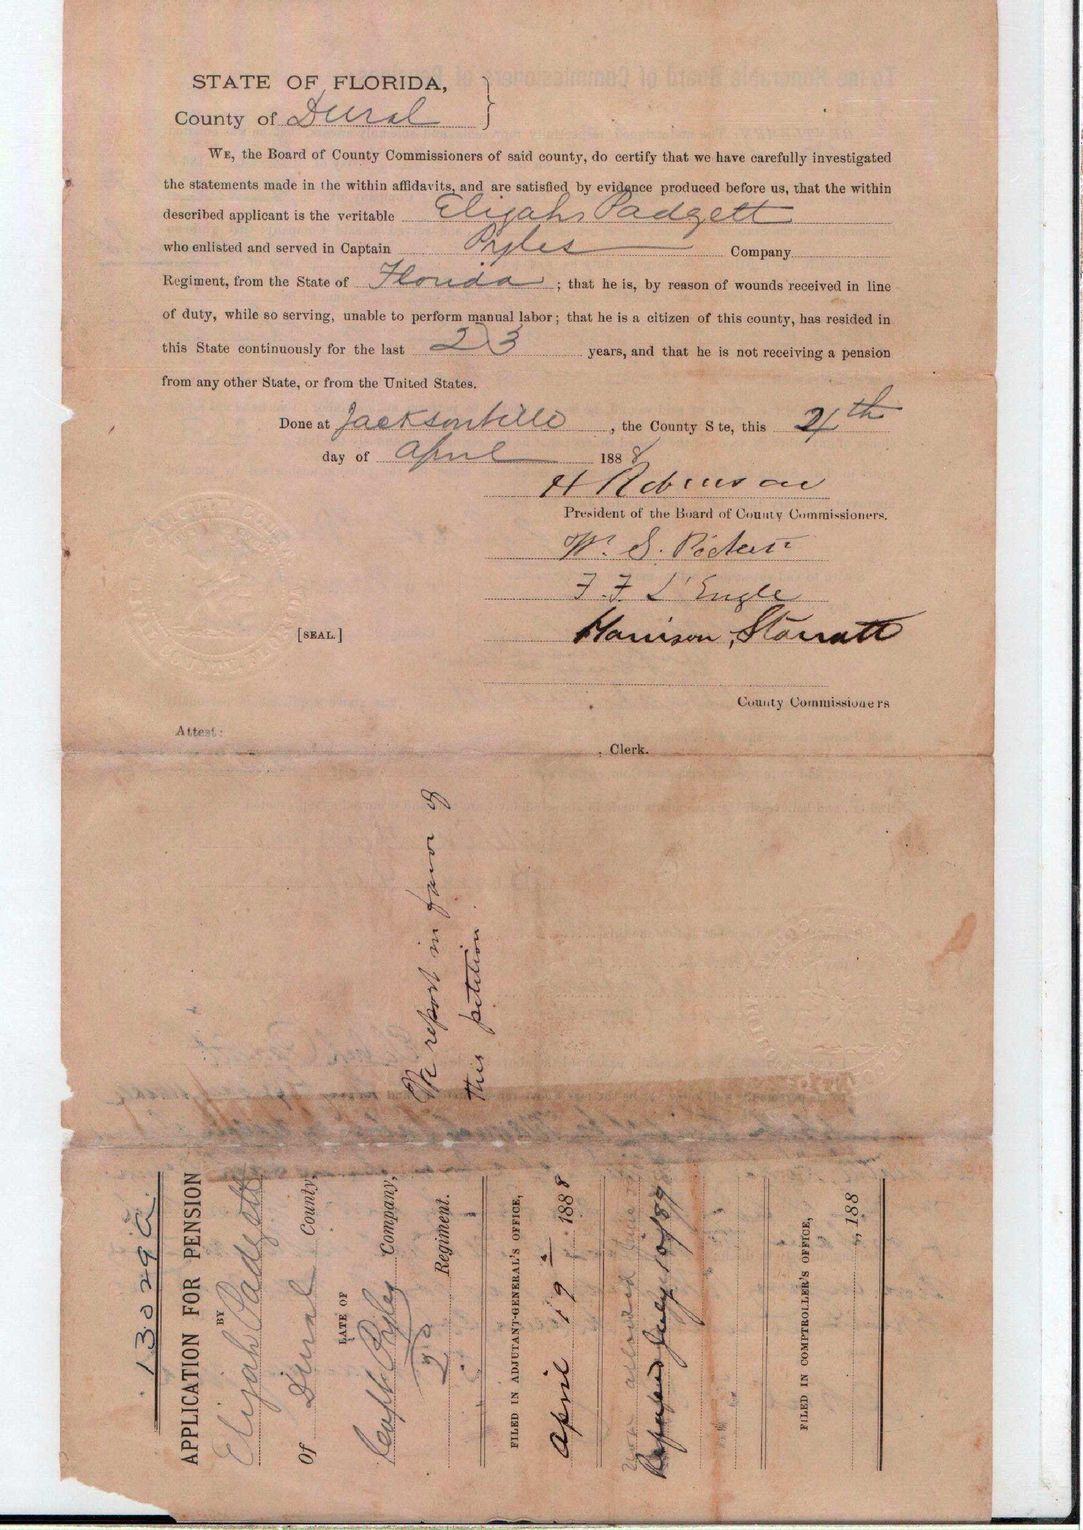 STATE OF FLORIDA,
County of Duval
WE, the Board of County Commissioners of said county, do certify that we have carefully investigated
the statements made in the within affidavits, and are satisfied by evidence produced before us, that the within
described applicant is the veritable Elijah Padgett
who enlisted and served in Captain Pyles Company
Regiment, from the State of Florida ; that he is, by reason of wounds received in line
of duty, while so serving, unable to perform manual labor; that he is a citizen of this county, has resided in
this State continuously for the last 23 years, and that he is not receiving a pension
from any other State, or from the United States.
Done at Jacksonville , the County S te, this 4th
day of April 1888
H Robinson
President of the Board of County Commissioners.
W. S.
F. F. L'Engle
Harrison Starratt
[SEAL.]
County Commissioners
Attest:
, Clerk.
We report in favor of
this petition
13029a
APPLICATION FOR PENSION
BY
Elijah Padgett
Of Duval County,
LATE OF
Capt Pyles Company,
Regiment.
FILED IN ADJUTANT-GENERAL'S OFFICE,
April 19 1888
July 10/89
FILED IN COMPTROLLER'S OFFICE,
, 188